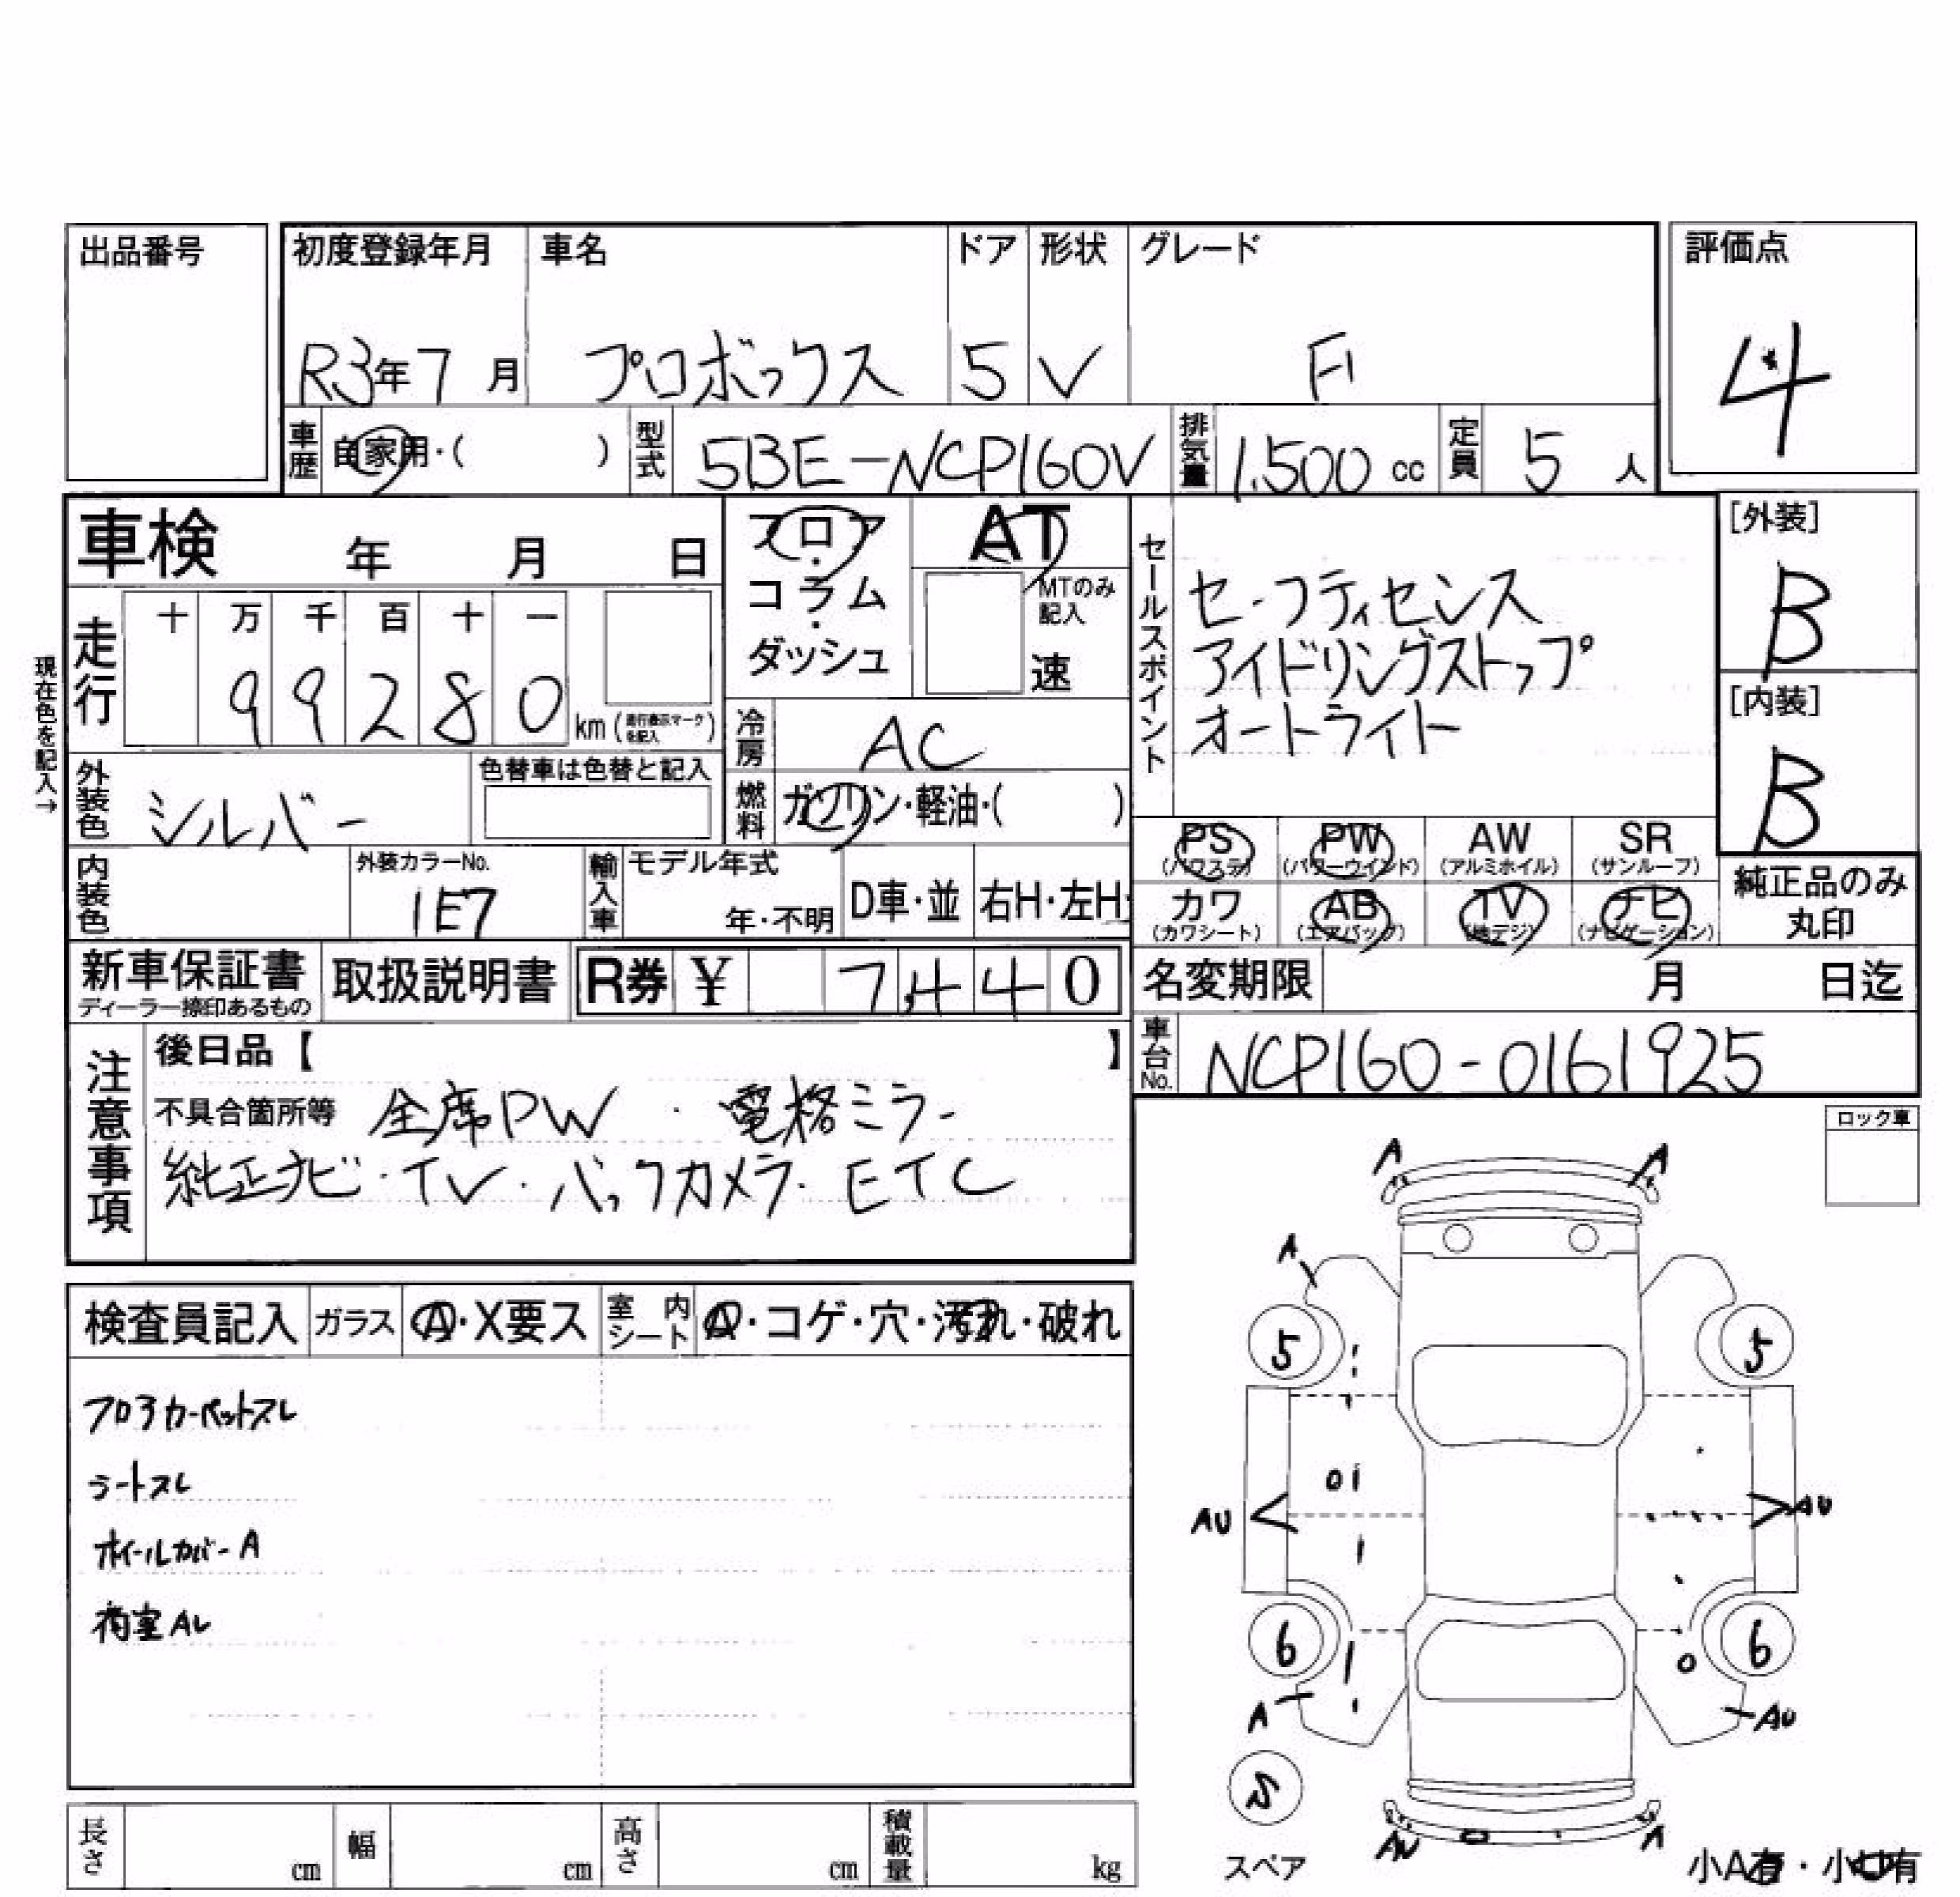 出品番号
初度登録年月 車名 ドア 形状 グレード 評価点
R3年7月 プロボックス 5 V F 4
車歴 自家用・( ) 型式 5BE-NCP160V 排気量 1.500 cc 定員 5 人
車検 年 月 日
フロア・コラム・ダッシュ
AT
MTのみ記入
速
セールスポイント
セーフティセンス
アイドリングストップ
オートライト
[外装]
B
[内装]
B
現在色を記入→
走行 十 万 千 百 十 一
99280 km (走行表示マークを記入)
冷房 AC
燃料 ガソリン・軽油・( )
外装色 シルバー 色替車は色替と記入
PS AW PW SR
(パワステ) (パワーウインド) (アルミホイル) (サンルーフ)
カワ AB TV ナビ
(カワシート) (エアバッグ) (地デジ) (ナビゲーション)
純正品のみ
丸印
内装色 外装カラーNo. 1E7 輸入車 モデル年式 年・不明 D車・並 右H・左H
新車保証書 ディーラー捺印あるもの 取扱説明書 R券 ¥ 7,440
名変期限 月 日迄
車台No. NCP160-0161925
注意事項
後日品【 】
不具合箇所等 全席PW・電格ミラー
純正ナビ・TV・バックカメラ・ETC
ロック車
検査員記入 ガラス A・X要ス 室内シート A・コゲ・穴・汚れ・破れ
フロアカーペットスレ
シートスレ
ホイールカバーA
荷室Aレ
A A
A
5 5
AU AU
6 6
A AU
スペア
AU A
小A有・小U有
長さ cm 幅 cm 高さ cm 積載量 kg